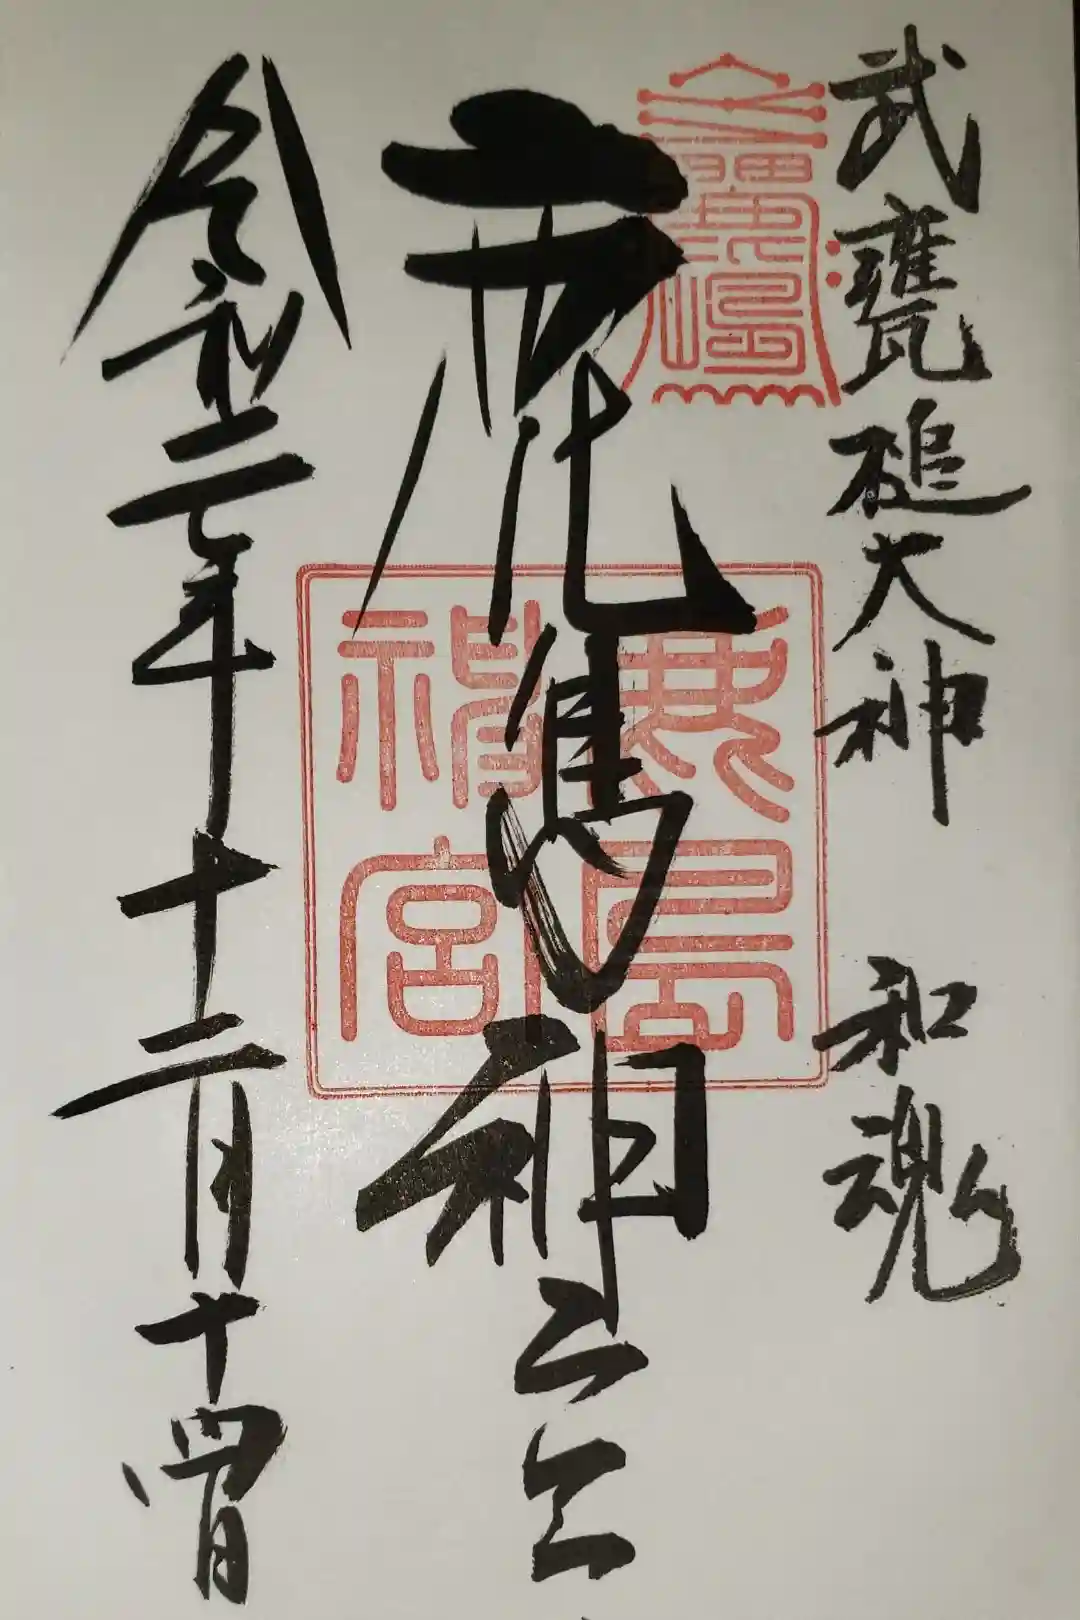 武甕槌大神 和魂
鹿島神宮
令和二年十二月十四日
鹿島
神宮